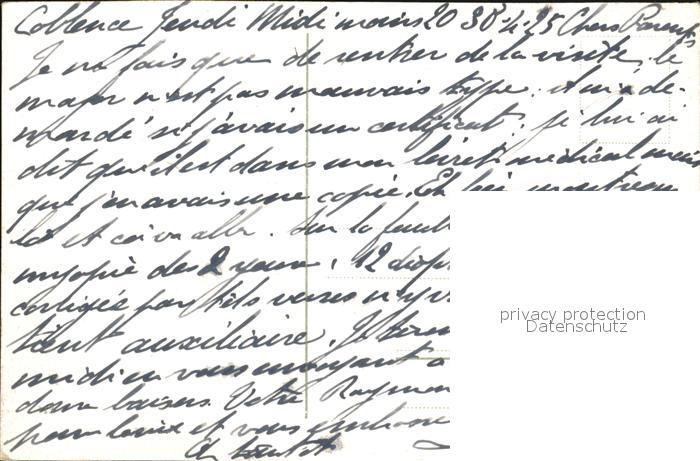 Coblence Jeudi Midi moins 20 30-4-25 Chers Parents
Je ne fais que de rentrer de la visite, le
major n'est pas mauvais type: il m'a de-
mandé si j'avais un certificat; je lui ai
dit qu'il est dans mon livret médical mais
que j'en avais une copie. Et lui montrer
là et ça va aller. Sur la feuil
myopie des 2 yeux, 12 diop
corrigée par tels verres n'y v
tout auxiliaire. Je term
midi en vous envoyant
doux baisers. Votre Raymon
pour la vie et vous embrasse
A bientôt
privacy protection
Datenschutz